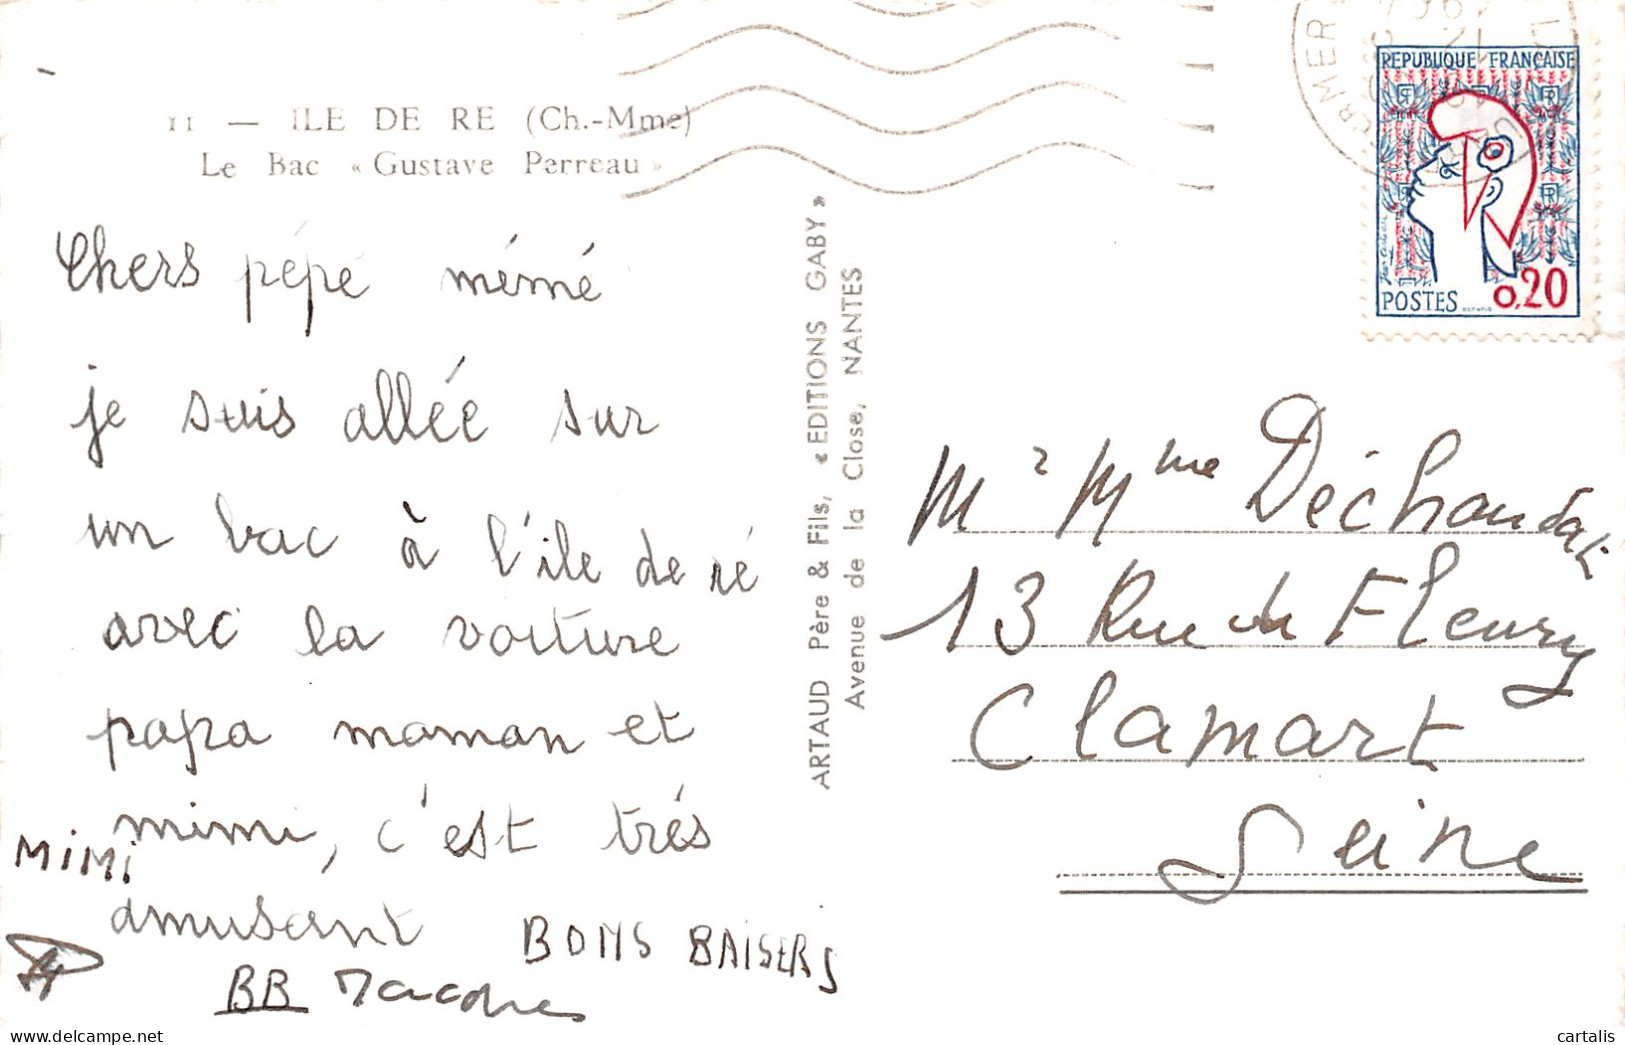 11 — ILE DE RE (Ch.-Mme)
Le Bac « Gustave Perreau »
Chers pépé mémé
je suis allée sur
un bac à l'ile de ré
avec la voiture
papa maman et
mimi, c'est trés
amusant
MiMi
BONS BAISERS
BB
ARTAUD Père & Fils, « EDITIONS GABY »
Avenue de la Close, NANTES
REPUBLIQUE FRANÇAISE
POSTES 0,20
Mr Mme
13 Rue du Fleury
Clamart
Seine
cartalis